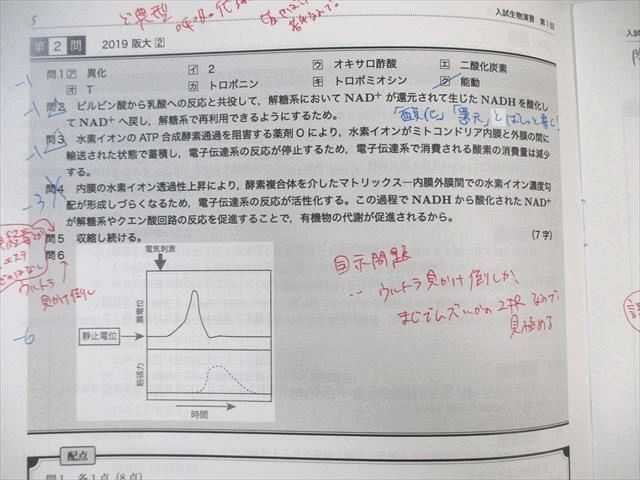 5
入試生物演習 第1回
と典型
第2問 2019 阪大 2
問1 ア 異化 イ 2 ウ オキサロ酢酸 エ 二酸化炭素
オ T カ トロポニン キ トロポミオシン ク 能動
-1
問2 ピルビン酸から乳酸への反応と共役して、解糖系において NAD⁺ が還元されて生じた NADH を酸化し
て NAD⁺ へ戻し、解糖系で再利用できるようにするため。
「酸化」「還元」とはっきと書く!
-1
問3 水素イオンの ATP 合成酵素通過を阻害する薬剤 O により、水素イオンがミトコンドリア内膜と外膜の間に
輸送された状態で蓄積し、電子伝達系の反応が停止するため、電子伝達系で消費される酸素の消費量は減少
する。
-1
問4 内膜の水素イオン透過性上昇により、酵素複合体を介したマトリックス―内膜外膜間での水素イオン濃度勾
配が形成しづらくなるため、電子伝達系の反応が活性化する。この過程で NADH から酸化された NAD⁺
が解糖系やクエン酸回路の反応を促進することで、有機物の代謝が促進されるから。
-3
問5 収縮し続ける。 (7字)
問6
ウルトラ
見かけ倒し
-6
電気刺激
膜電位
静止電位
筋張力
時間
目示問題
ウルトラ見かけ倒しか、
まじでムズいかの2択なので
見極める
配点
問1 各1点(8点)